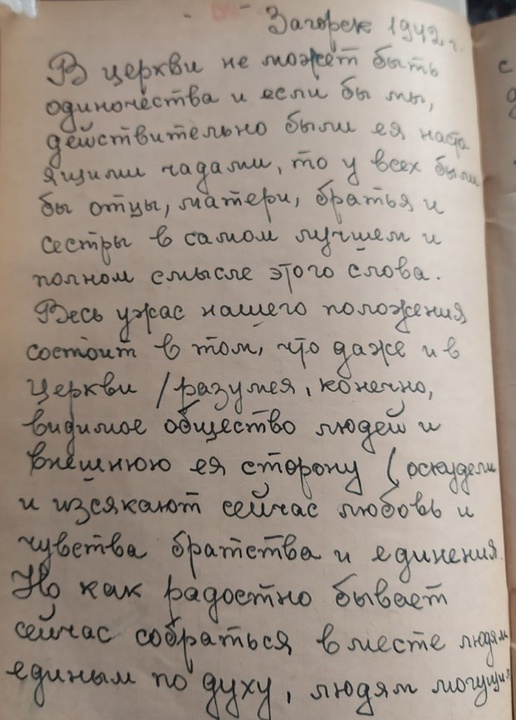 Загорск 1942 г.
В церкви не может быть
одиночества и если бы мы,
действительно были ея наста
ящими чадами, то у всех были
бы отцы, матери, братья и
сестры в самом лучшем и
полном смысле этого слова.
Весь ужас нашего положения
состоит в том, что даже и в
церкви /разумея, конечно,
видимое общество людей и
внешнюю ея сторону (оскудели
и изсякают сейчас любовь и
чувства братства и единения.
Но как радостно бывает
сейчас собраться вместе людям
единым по духу, людям могущим